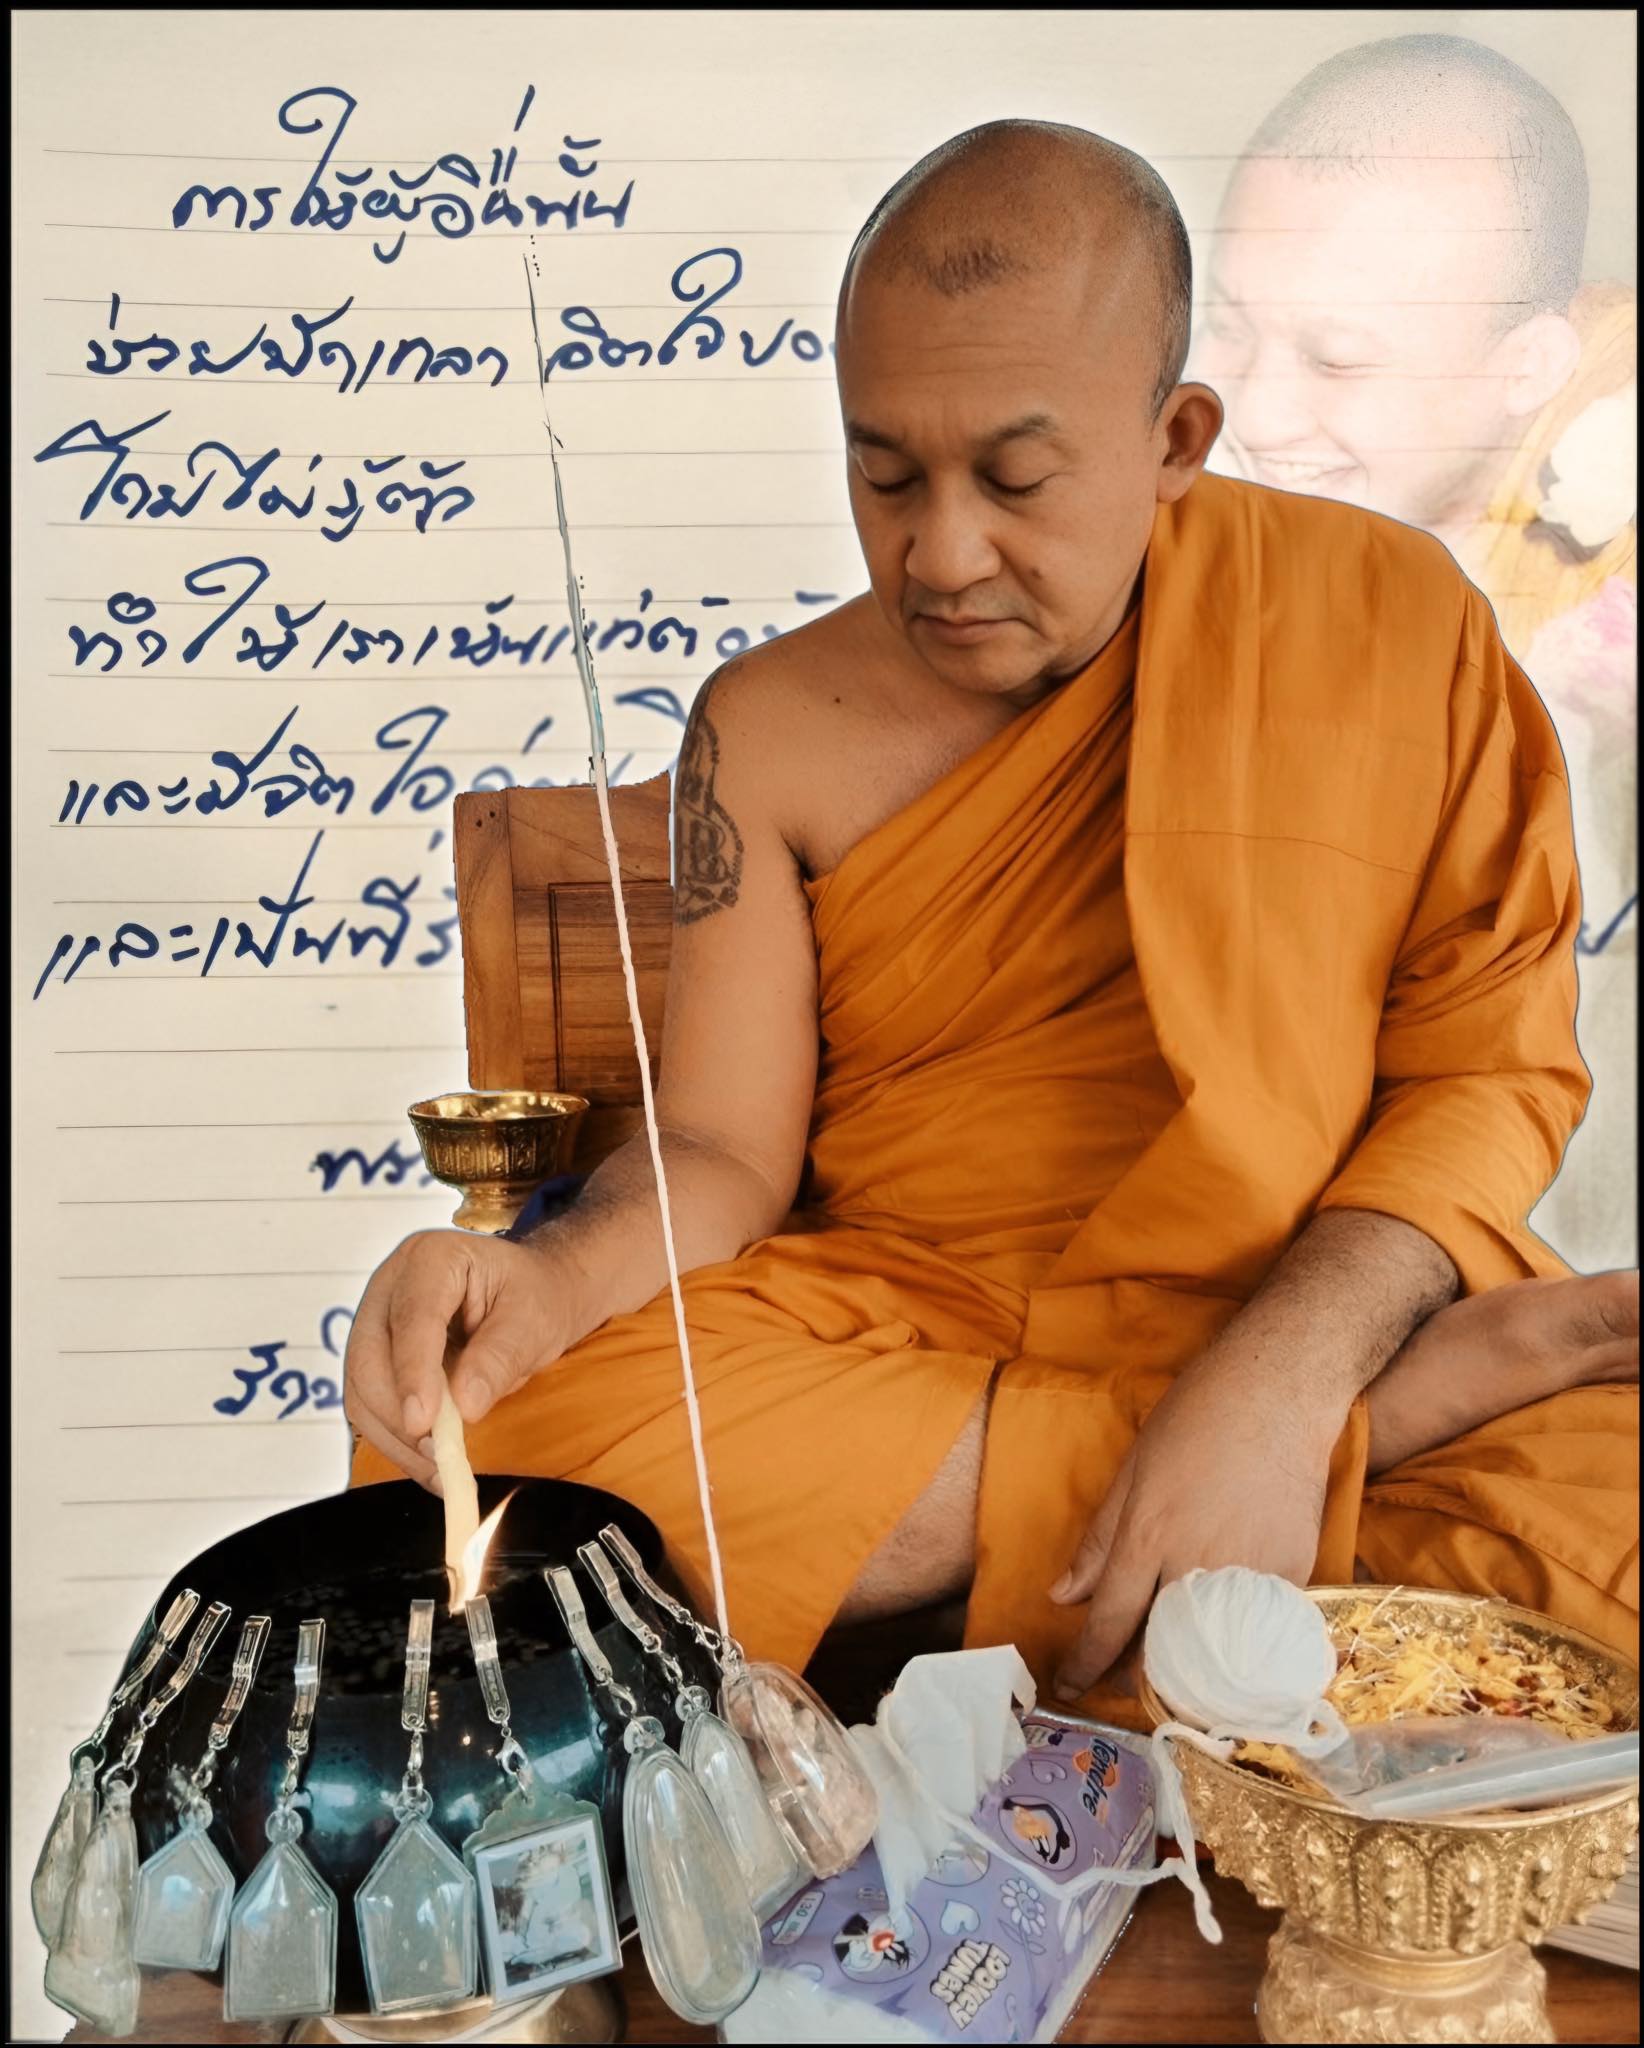 การให้ผู้อื่นนั้น
ช่วยขัดเกลา จิตใจของ
โดยไม่รู้ตัว
ทำให้เราเห็นแก่ตั
และมีจิตใจ
และเป็นที่รั
พระ
วัด
Tendre
LOONEY TUNES